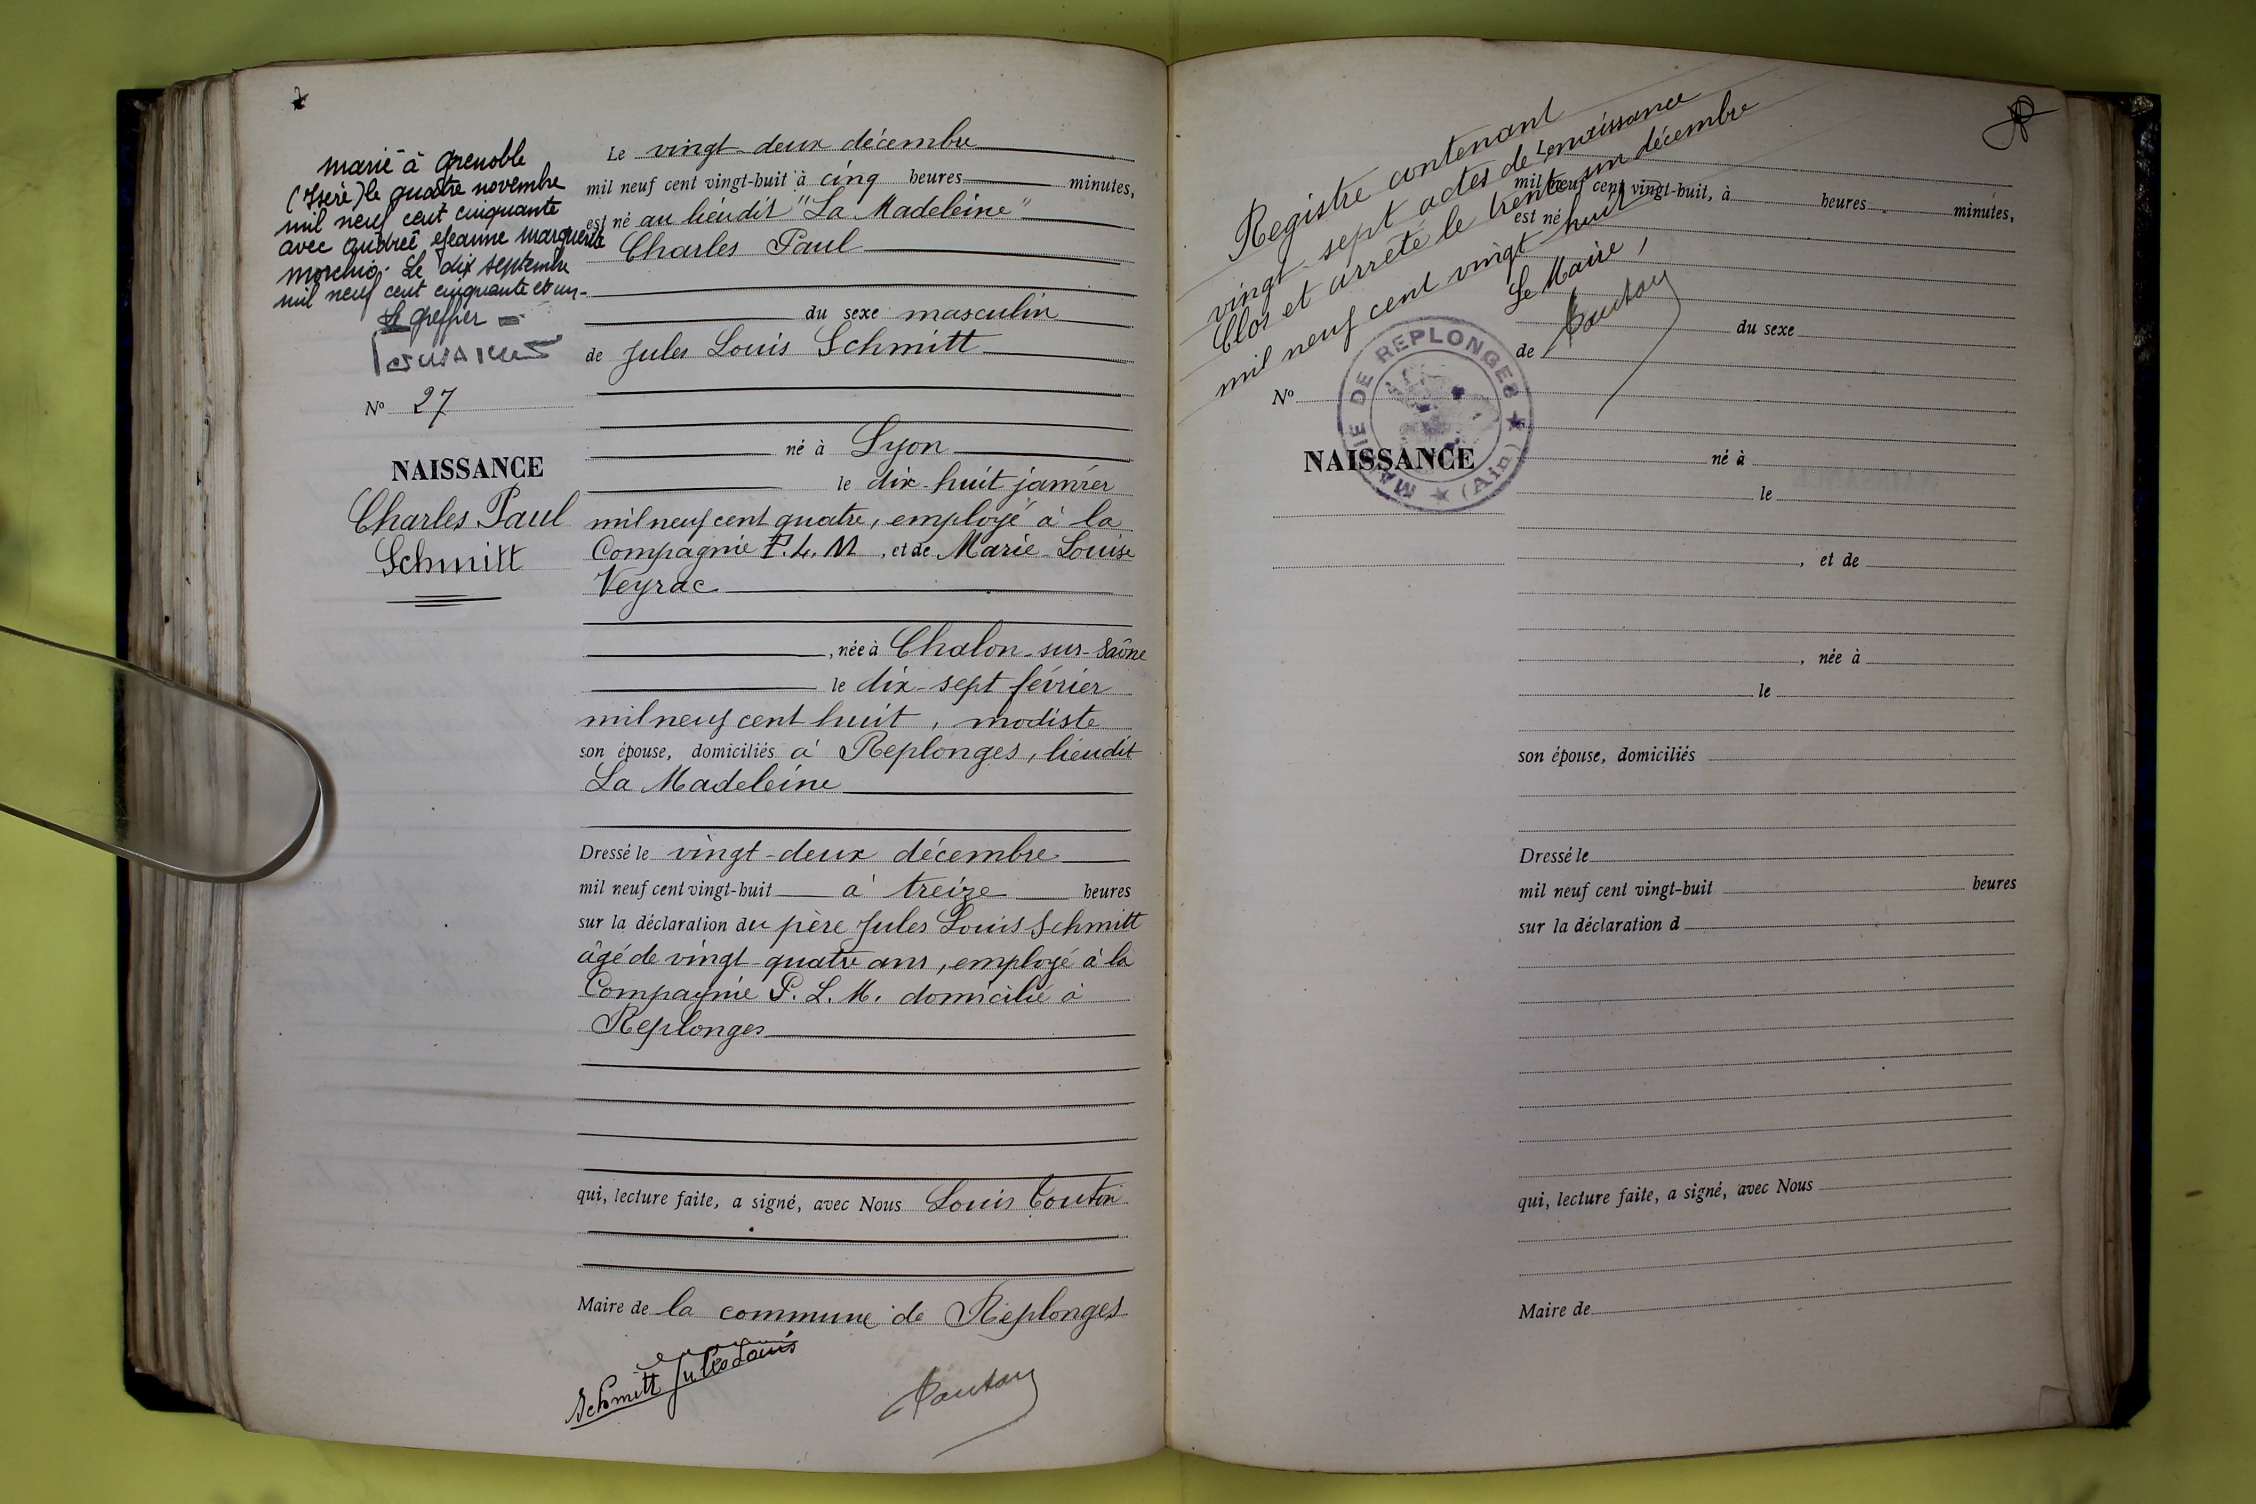 marié à Grenoble
(Isère) le quatre novembre
mil neuf cent cinquante
avec Andrée Jeanne Marguerite
Morchio. Le dix septembre
mil neuf cent cinquante et un.
Le Greffier
N° 27
NAISSANCE
Charles Paul
Schmitt
Le vingt-deux décembre
mil neuf cent vingt-huit à cinq heures minutes,
est né au lieudit "La Madeleine"
Charles Paul
du sexe masculin
de Jules Louis Schmitt
né à Lyon
le dix-huit janvier
mil neuf cent quatre, employé à la
Compagnie P.L.M, et de Marie-Louise
Veyrac
, née à Chalon-sur-Saône
le dix-sept février
mil neuf cent huit, modiste
son épouse, domiciliés à Replonges, lieudit
La Madeleine
Dressé le vingt-deux décembre
mil neuf cent vingt-huit à treize heures
sur la déclaration du père Jules Louis Schmitt
âgé de vingt-quatre ans, employé à la
Compagnie P.L.M. domicilié à
Replonges
qui, lecture faite, a signé, avec Nous Louis
Maire de la commune de Replonges
Schmitt Jules Louis
Registre contenant
vingt-sept actes de naissance
Clos et arrêté le trente un décembre
mil neuf cent vingt huit
Le Maire,
MAIRIE DE REPLONGES
(Ain)
N°
NAISSANCE
Le
mil neuf cent vingt-huit, à heures minutes,
est né
du sexe
de
né à
le
, et de
, née à
le
son épouse, domiciliés
Dressé le
mil neuf cent vingt-huit heures
sur la déclaration d
qui, lecture faite, a signé, avec Nous
Maire de